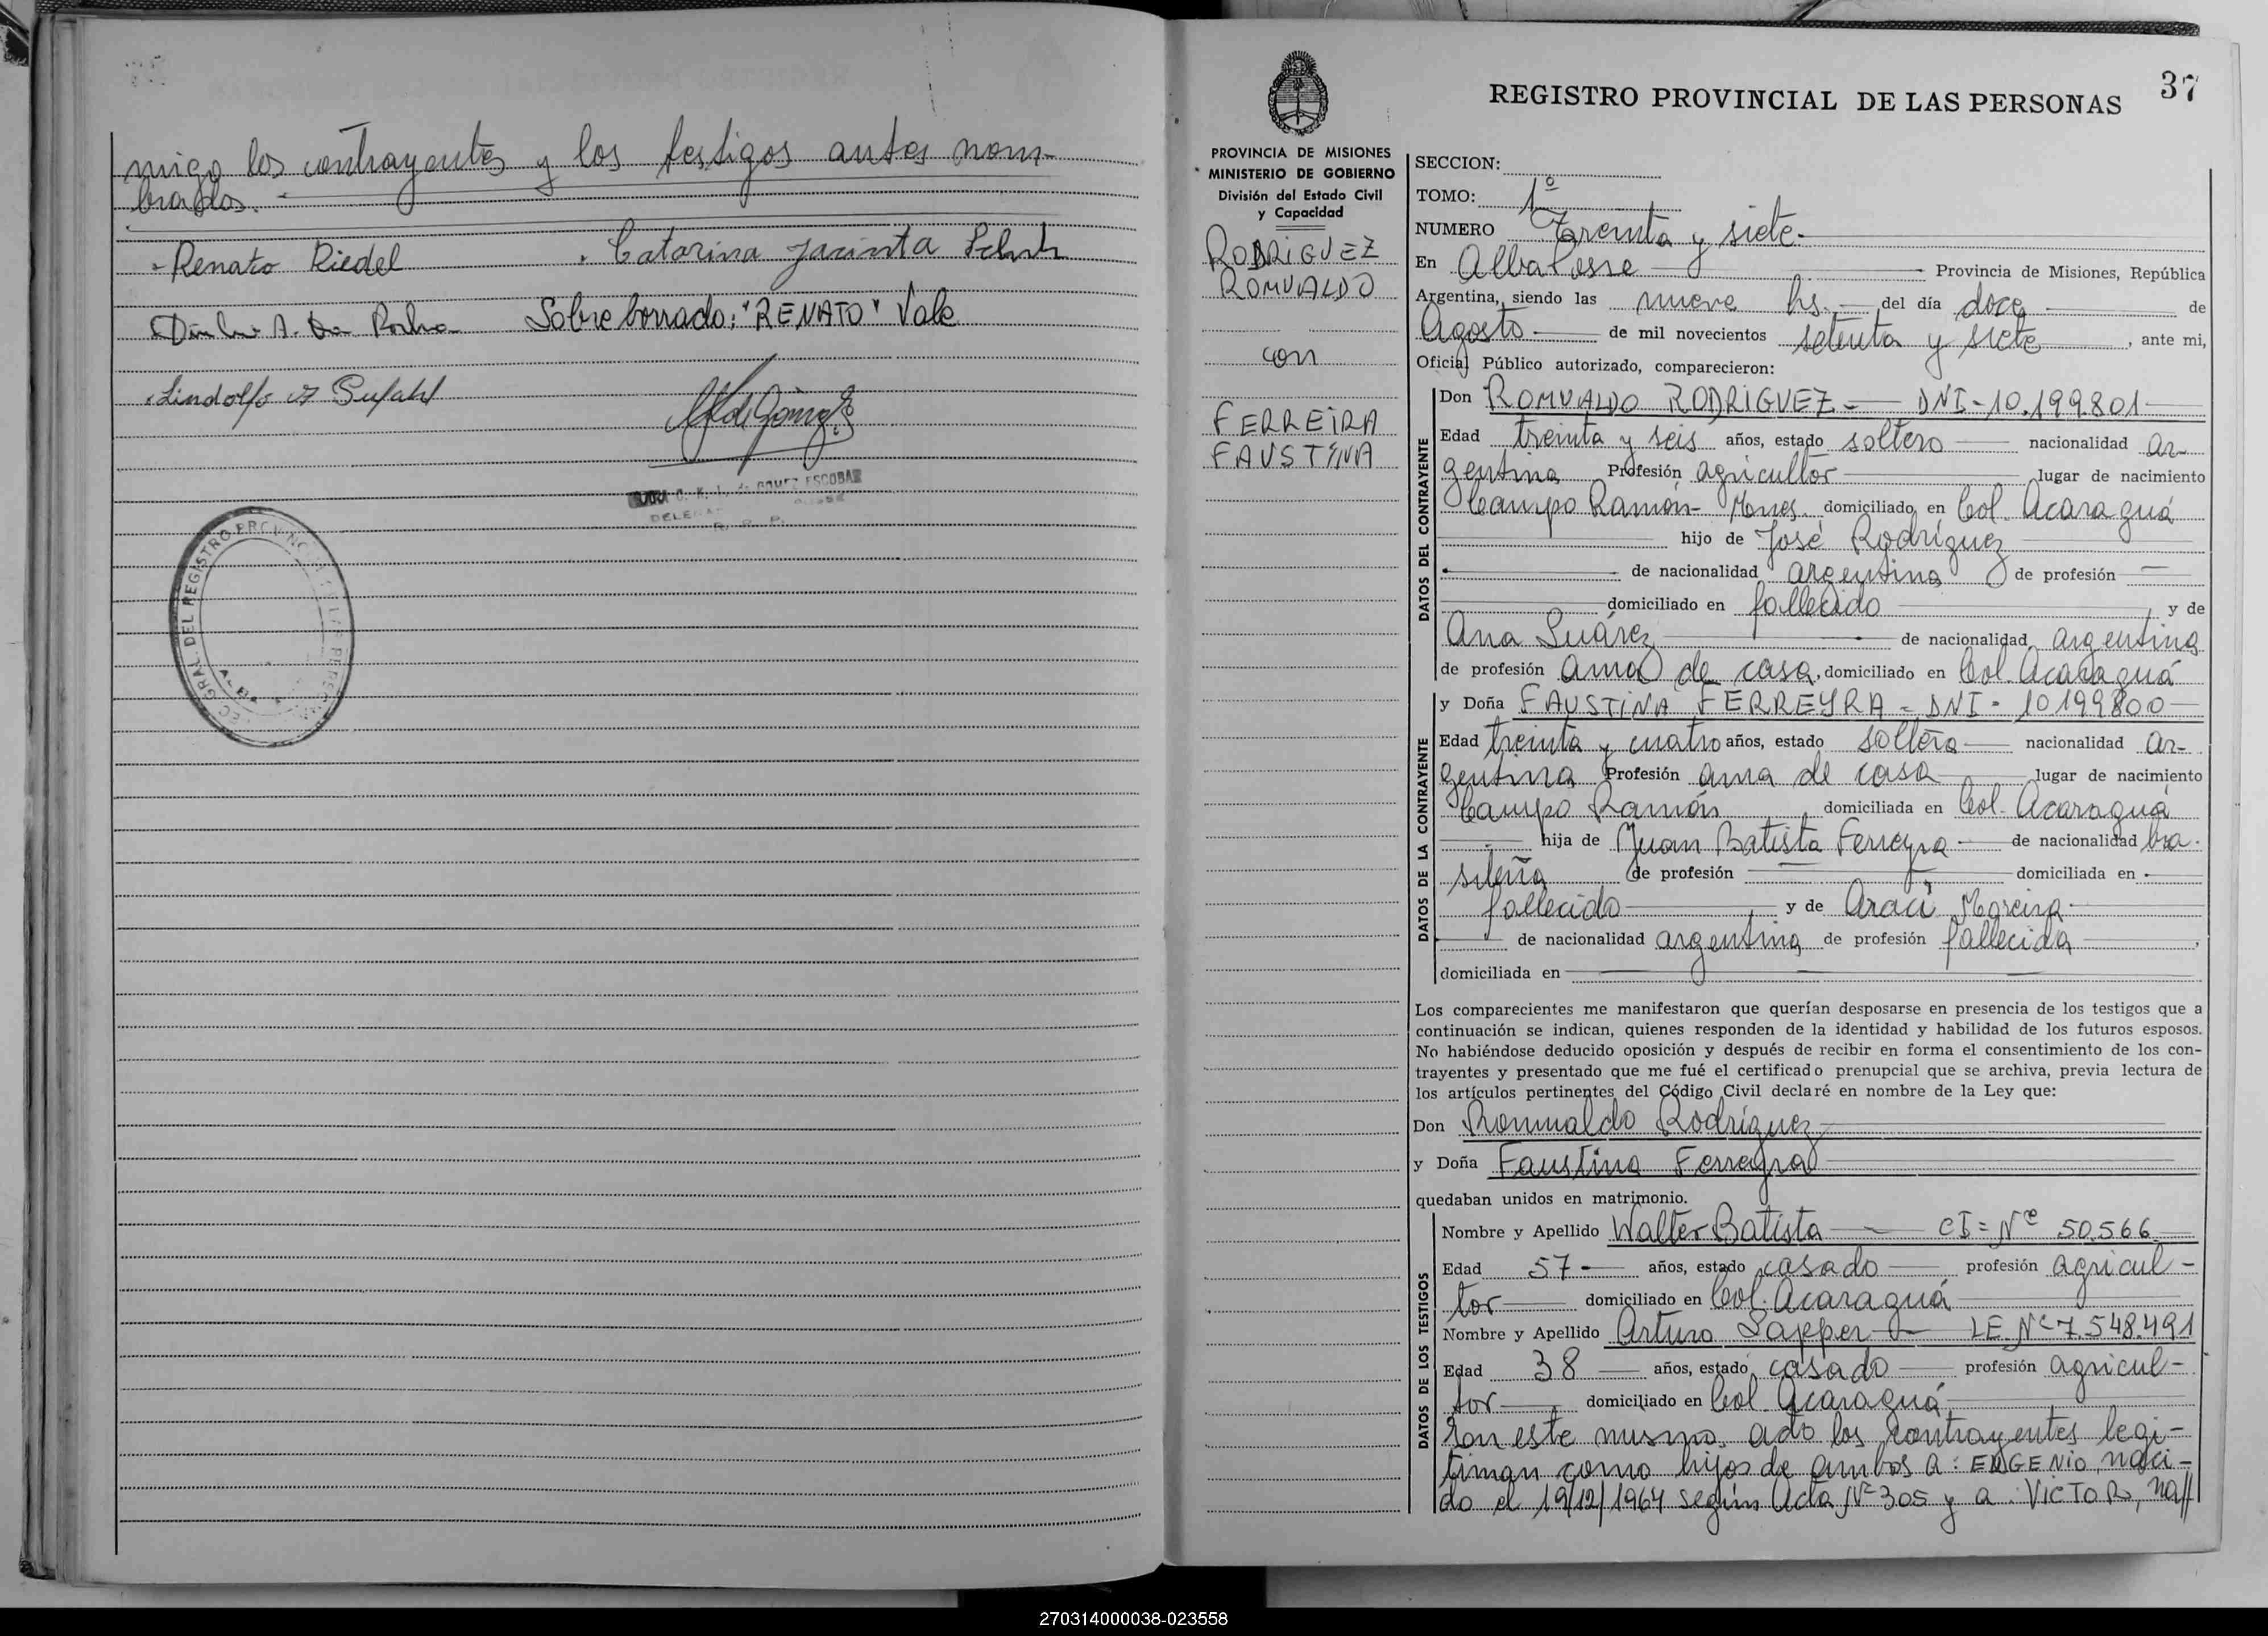 migo los contrayentes y los testigos antes nom-
brados.
Renato Riedel
Catarina Jacinta
Sobre borrado: "RENATO" Vale
Lindolfo
GOMEZ ESCOBAR
DELE
R. P.
GRAL. DEL REGISTRO PROVINCIAL DE LAS PERSONAS
37
REGISTRO PROVINCIAL DE LAS PERSONAS
PROVINCIA DE MISIONES
MINISTERIO DE GOBIERNO
División del Estado Civil
y Capacidad
RODRIGUEZ
ROMUALDO
con
FERREIRA
FAUSTINA
SECCION:
TOMO: 1º
NUMERO Treinta y siete.-
En Alba Posse Provincia de Misiones, República
Argentina, siendo las nueve hs. del día doce de
Agosto de mil novecientos setenta y siete, ante mi,
Oficial Público autorizado, comparecieron:
DATOS DEL CONTRAYENTE
Don ROMUALDO RODRIGUEZ - DNI - 10.199.801
Edad treinta y seis años, estado soltero nacionalidad ar-
gentina Profesión agricultor lugar de nacimiento
Campo Ramón - Mnes. domiciliado en Col. Acaraguá
hijo de José Rodríguez
de nacionalidad argentina de profesión
domiciliado en fallecido y de
Ana Suárez de nacionalidad argentina
de profesión ama de casa, domiciliado en Col. Acaraguá
DATOS DE LA CONTRAYENTE
y Doña FAUSTINA FERREYRA - DNI - 10199800
Edad treinta y cuatro años, estado soltera nacionalidad ar-
gentina Profesión ama de casa lugar de nacimiento
Campo Ramón domiciliada en Col. Acaraguá
hija de Juan Batista Ferreyra de nacionalidad bra-
sileña de profesión domiciliada en
fallecido y de Araci Moreira
de nacionalidad argentina de profesión fallecida,
domiciliada en
Los comparecientes me manifestaron que querían desposarse en presencia de los testigos que a
continuación se indican, quienes responden de la identidad y habilidad de los futuros esposos.
No habiéndose deducido oposición y después de recibir en forma el consentimiento de los con-
trayentes y presentado que me fué el certificado prenupcial que se archiva, previa lectura de
los artículos pertinentes del Código Civil declaré en nombre de la Ley que:
Don Romualdo Rodríguez
y Doña Faustina Ferreyra
quedaban unidos en matrimonio.
DATOS DE LOS TESTIGOS
Nombre y Apellido Walter Batista CI = Nº 50.566
Edad 57 años, estado casado profesión agricul-
tor domiciliado en Col. Acaraguá
Nombre y Apellido Arturo Sapper LE. Nº 7.548.491
Edad 38 años, estado casado profesión agricul-
tor domiciliado en Col. Acaraguá
Con este mismo acto los contrayentes legi-
timan como hijos de ambos a: EUGENIO, naci-
do el 19/12/1964 según Acta Nº 305 y a: VICTOR, na//
270314000038-023558